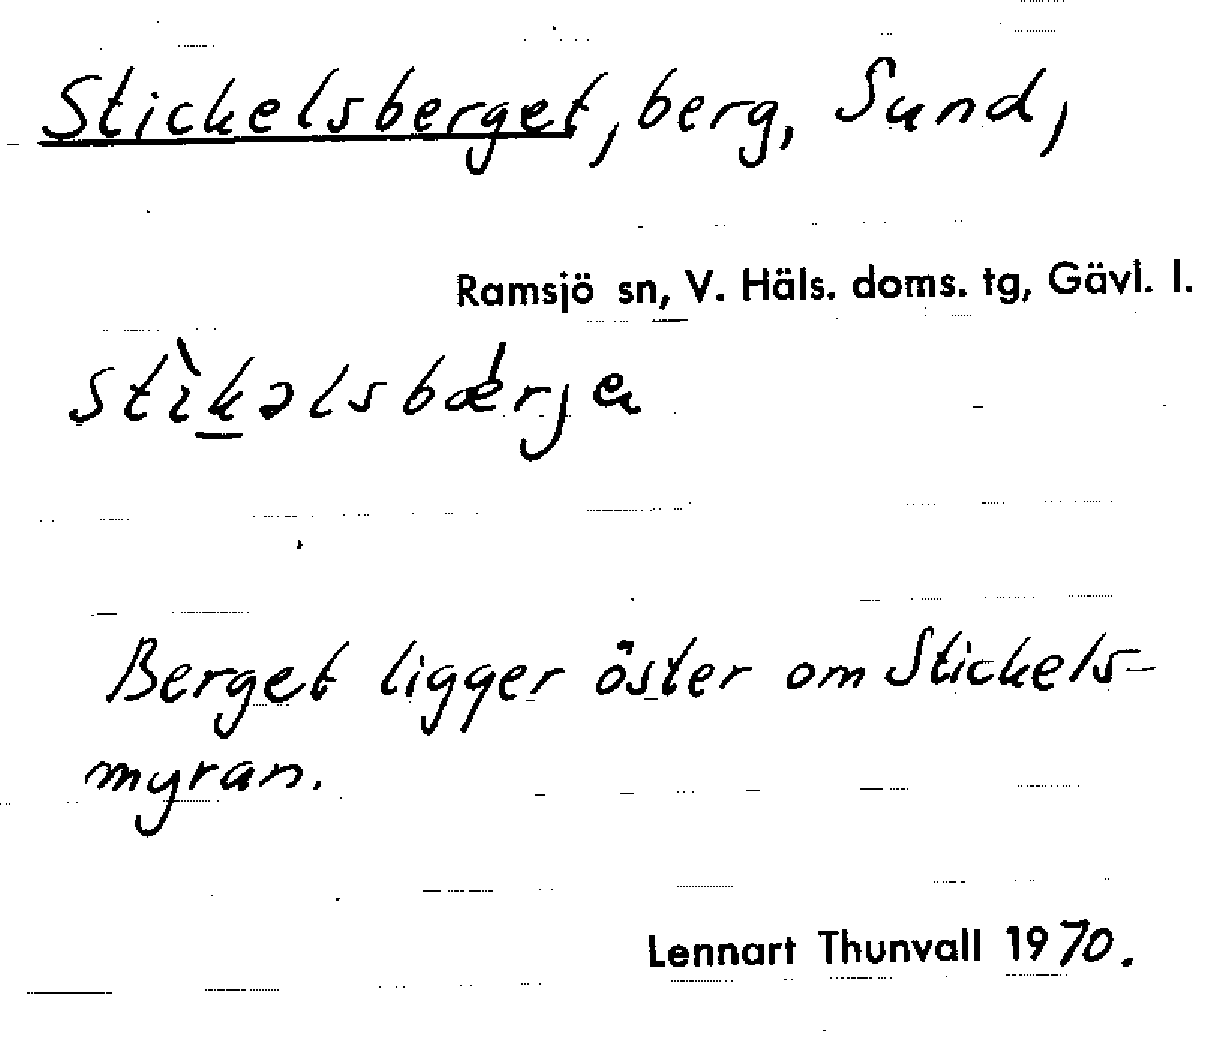 Stickelsberget, berg, Sund,
Ramsjö sn, V. Häls. doms. tg, Gävl. l.
stìk̲əlsbǽrjeͅ
Berget ligger öster om Stickels-
myran.
Lennart Thunvall 1970.